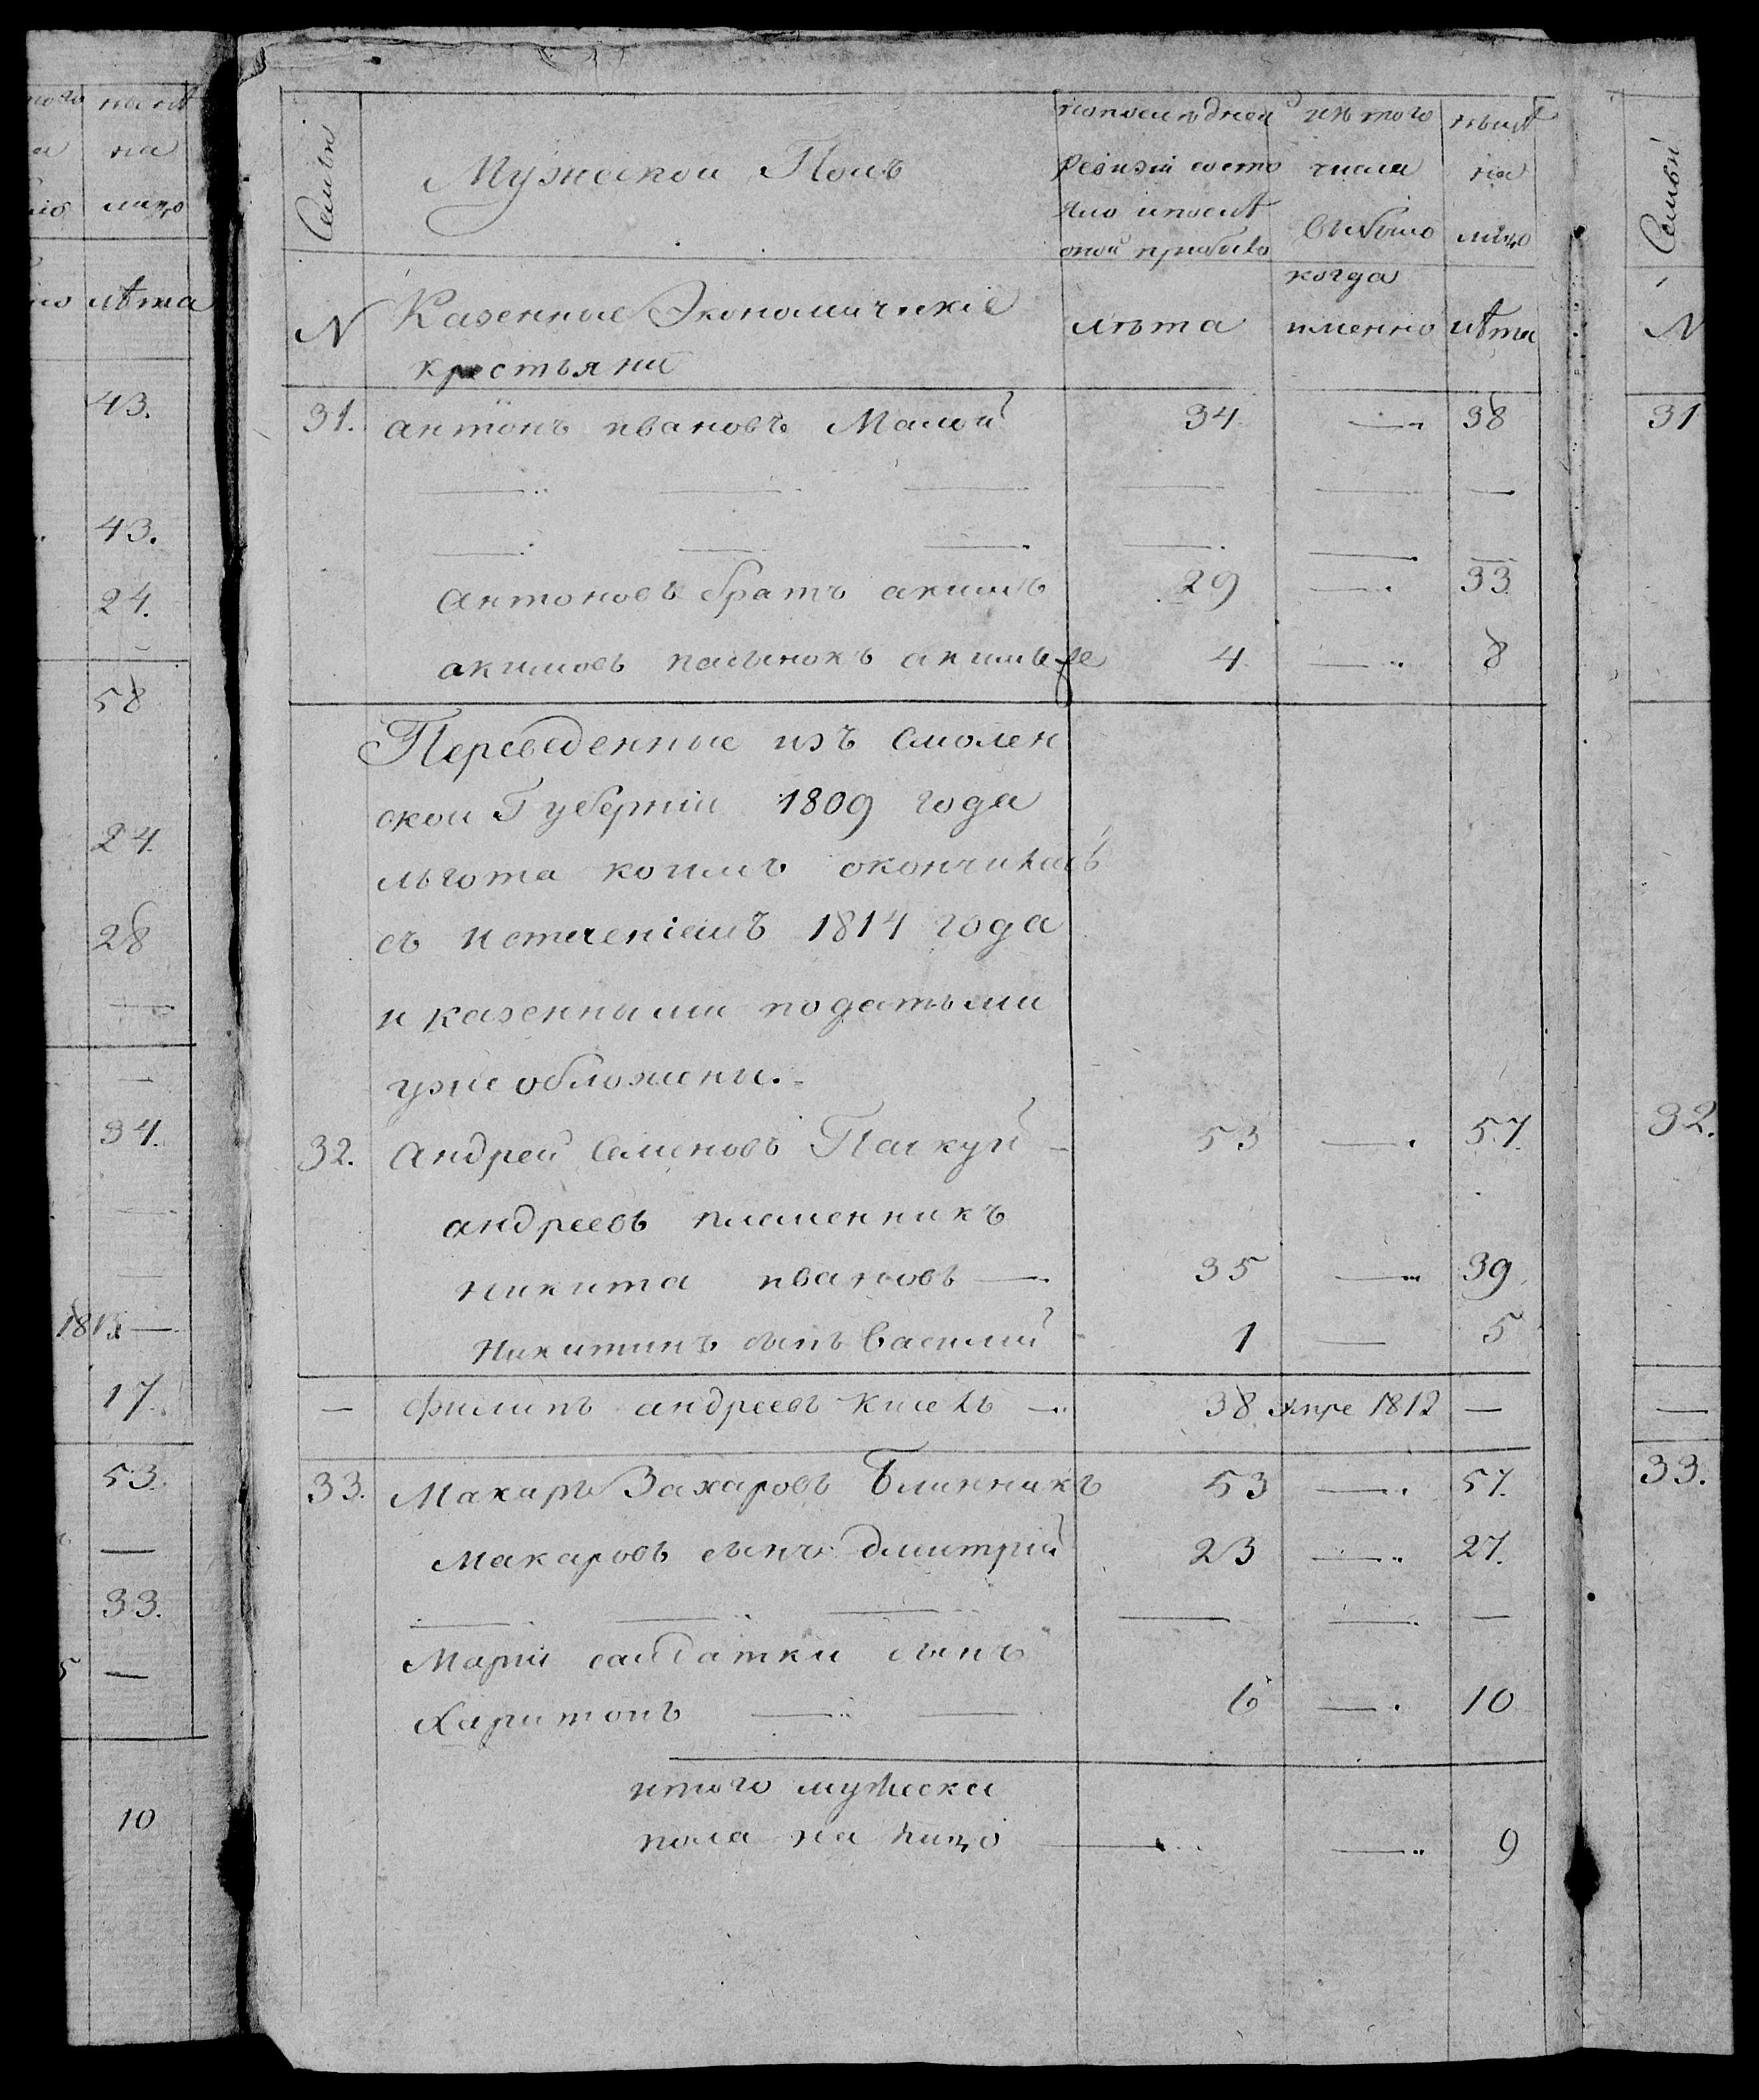 Семьи
Мужескои Полъ
По последней Ревизіи состояло и после оной прибыло
Изъ того числа выбыло
Ныне на лицо
N
Казенные Экономическіе крестьяни
лета
когда именно
лѣта
31. антонъ ивановъ Малой 34 — 38
— — — — — —
— — — — — —
Антоновъ братъ акимъ 29 — 33
акимовъ 4 — 8
Переведенные изъ Смолен
ской Губерніи 1809 года
льгота коимъ окончилась
съ истеченіемъ 1814 года
и казенными податьми
уже обложены.
32. Андрей Семеновъ 53 — 57.
андреевъ племенникъ
никита ивановъ — 35 — 39
Никитинъ сынъ Василий 1 — 5
— Филипъ андреевъ Кисель — 38 1812 —
33. Макаръ Захаровъ Блинникъ 53 — 57.
Макаровъ сынъ дмитрій 23 — 27.
— — — — — —
Маріи салдатки сынъ
Харитонъ — — 6 — 10
итого мужеска
пола на лицо — — 9
43.
43.
24.
58
24.
28
—
—
34.
—
—
17.
53.
—
33.
—
10
Семьи
N
31
32.
—
33.